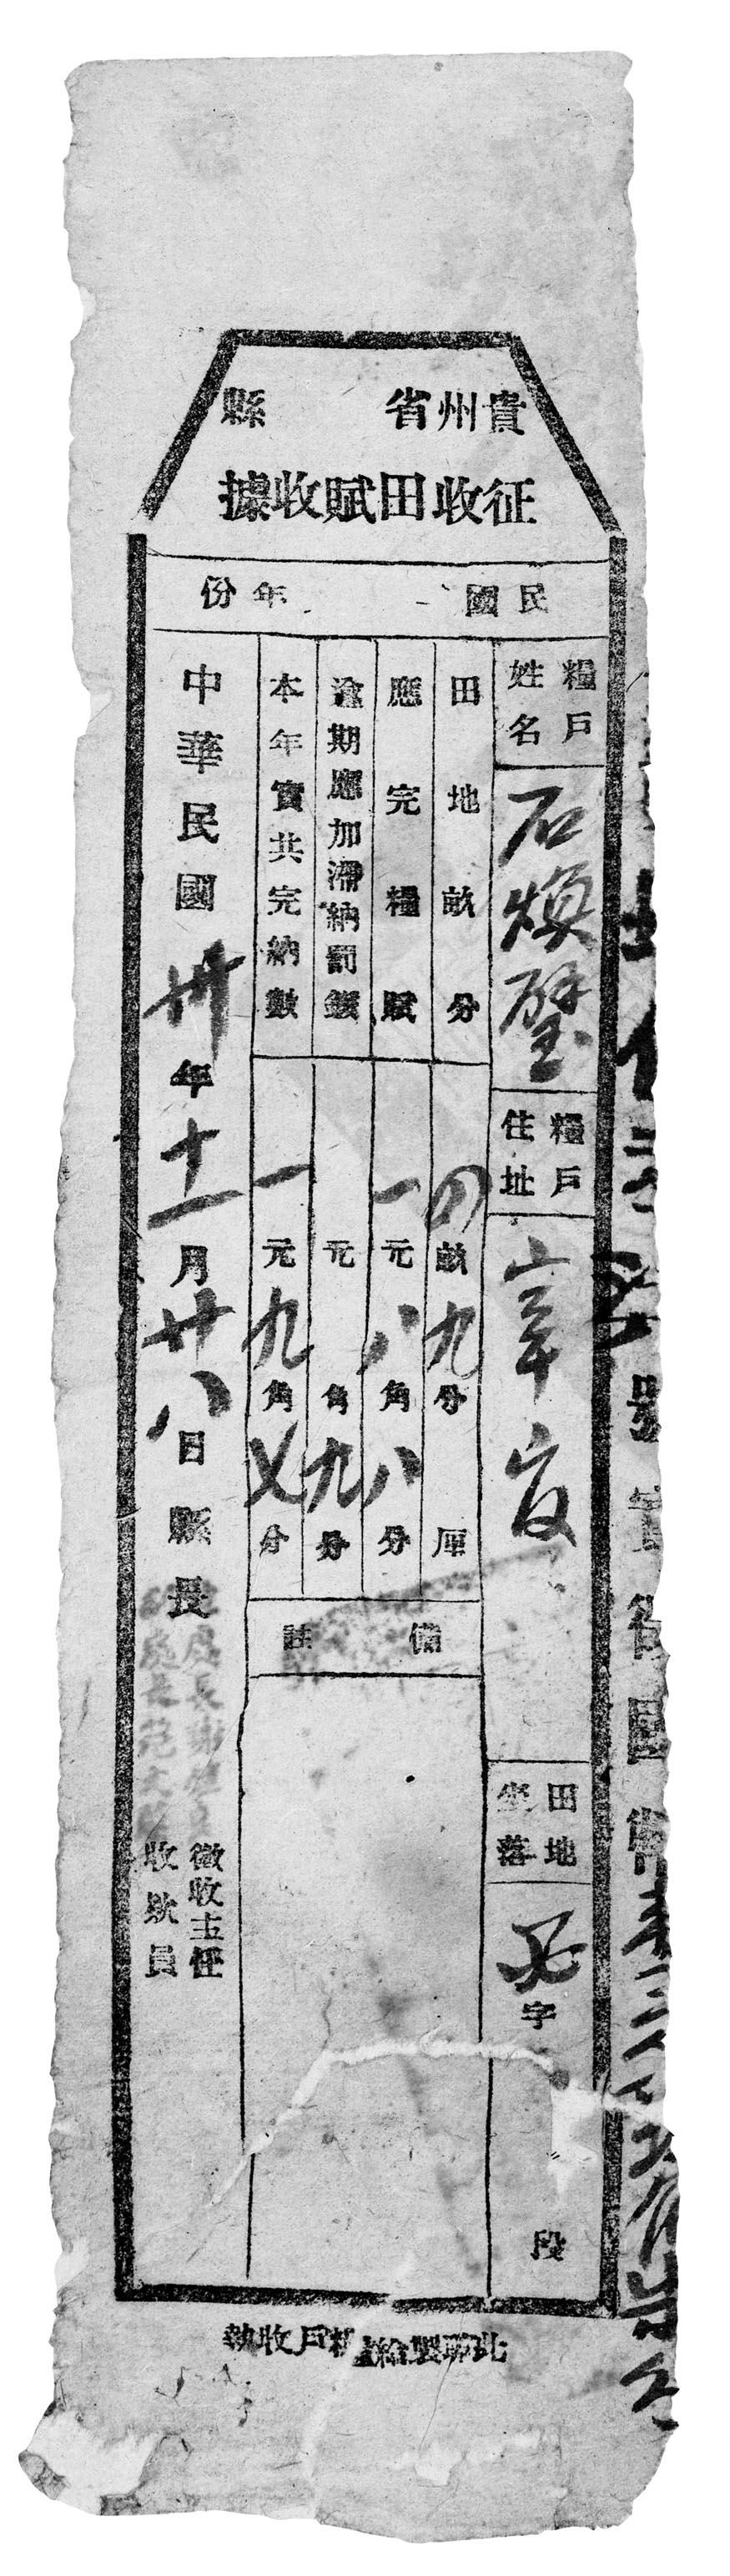 貴州省　　縣
征收田賦收據
民國　　年份
糧戶姓名
石煥璧
糧戶住址
田地坐落
字　段
田地畝分
四畝九分　厘
應完糧賦
一元八角八分
逾期應加滯納罰鍰
元　角九分
本年實共完納數
一元九角乂分
備註
中華民國卅年十一月廿八日縣長
徵收主任
收款員
此聯製給糧戶收執